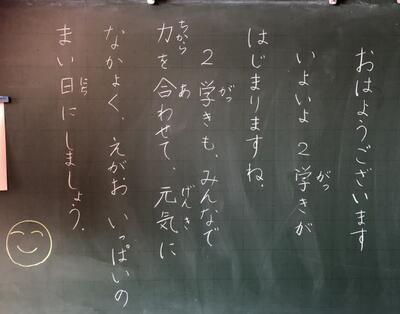 おはようございます
いよいよ２学きが
はじまりますね。
２学きも、みんなで
力を合わせて、元気に
なかよく、えがおいっぱいの
まい日にしましょう。